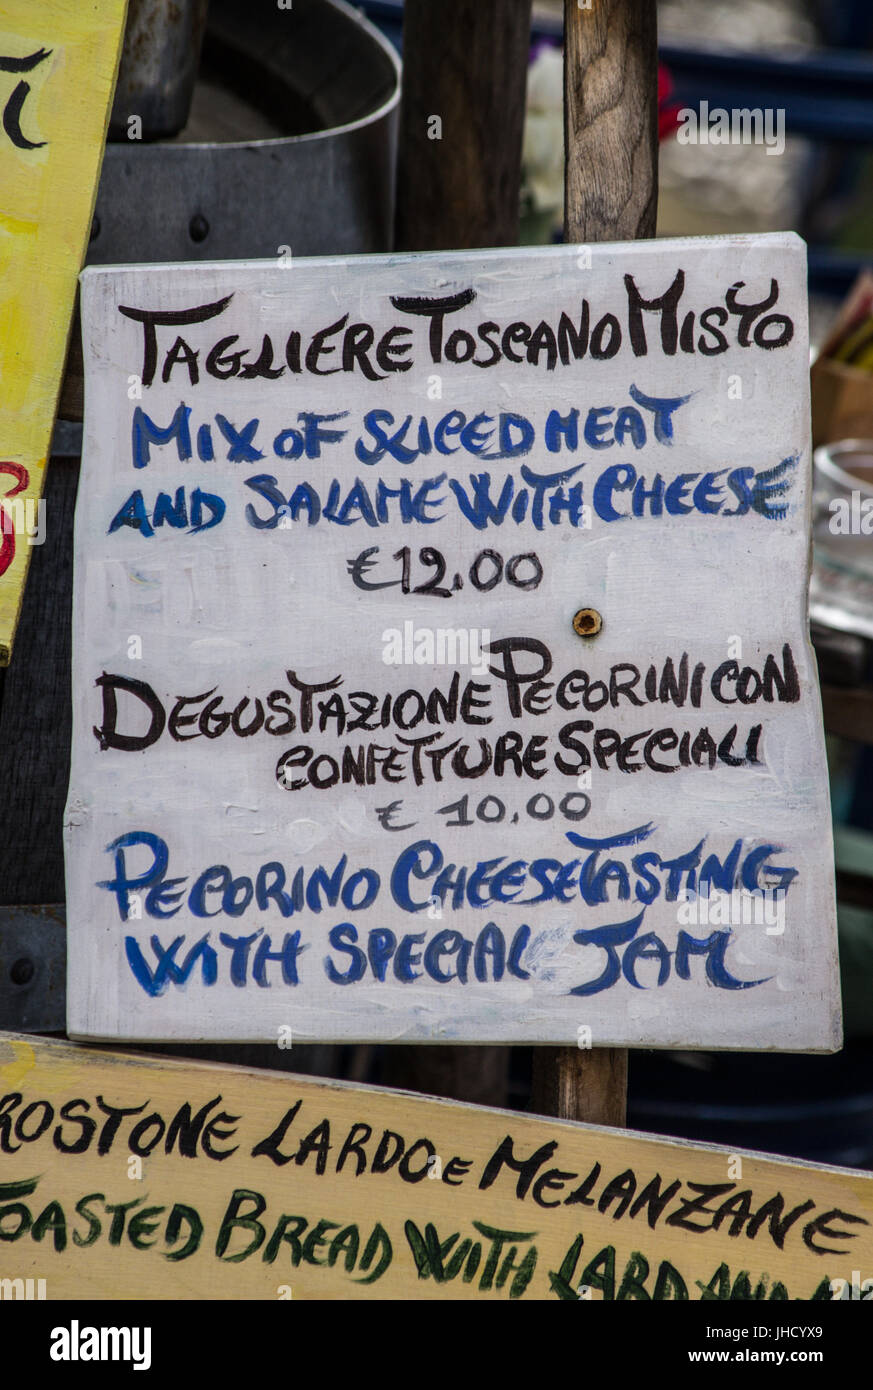 TAGLIERE TOSCANO MISTO
MIX OF SLICED MEAT
AND SALAME WITH CHEESE
€12.00
DEGUSTAZIONE PECORINI CON
CONFETTURE SPECIALI
€ 10.00
PECORINO CHEESE TASTING
WITH SPECIAL JAM
ROSTONE LARDO E MELANZANE
TOASTED BREAD WITH LARD AND
alamy stock photo
JHCYX9
www.alamy.com